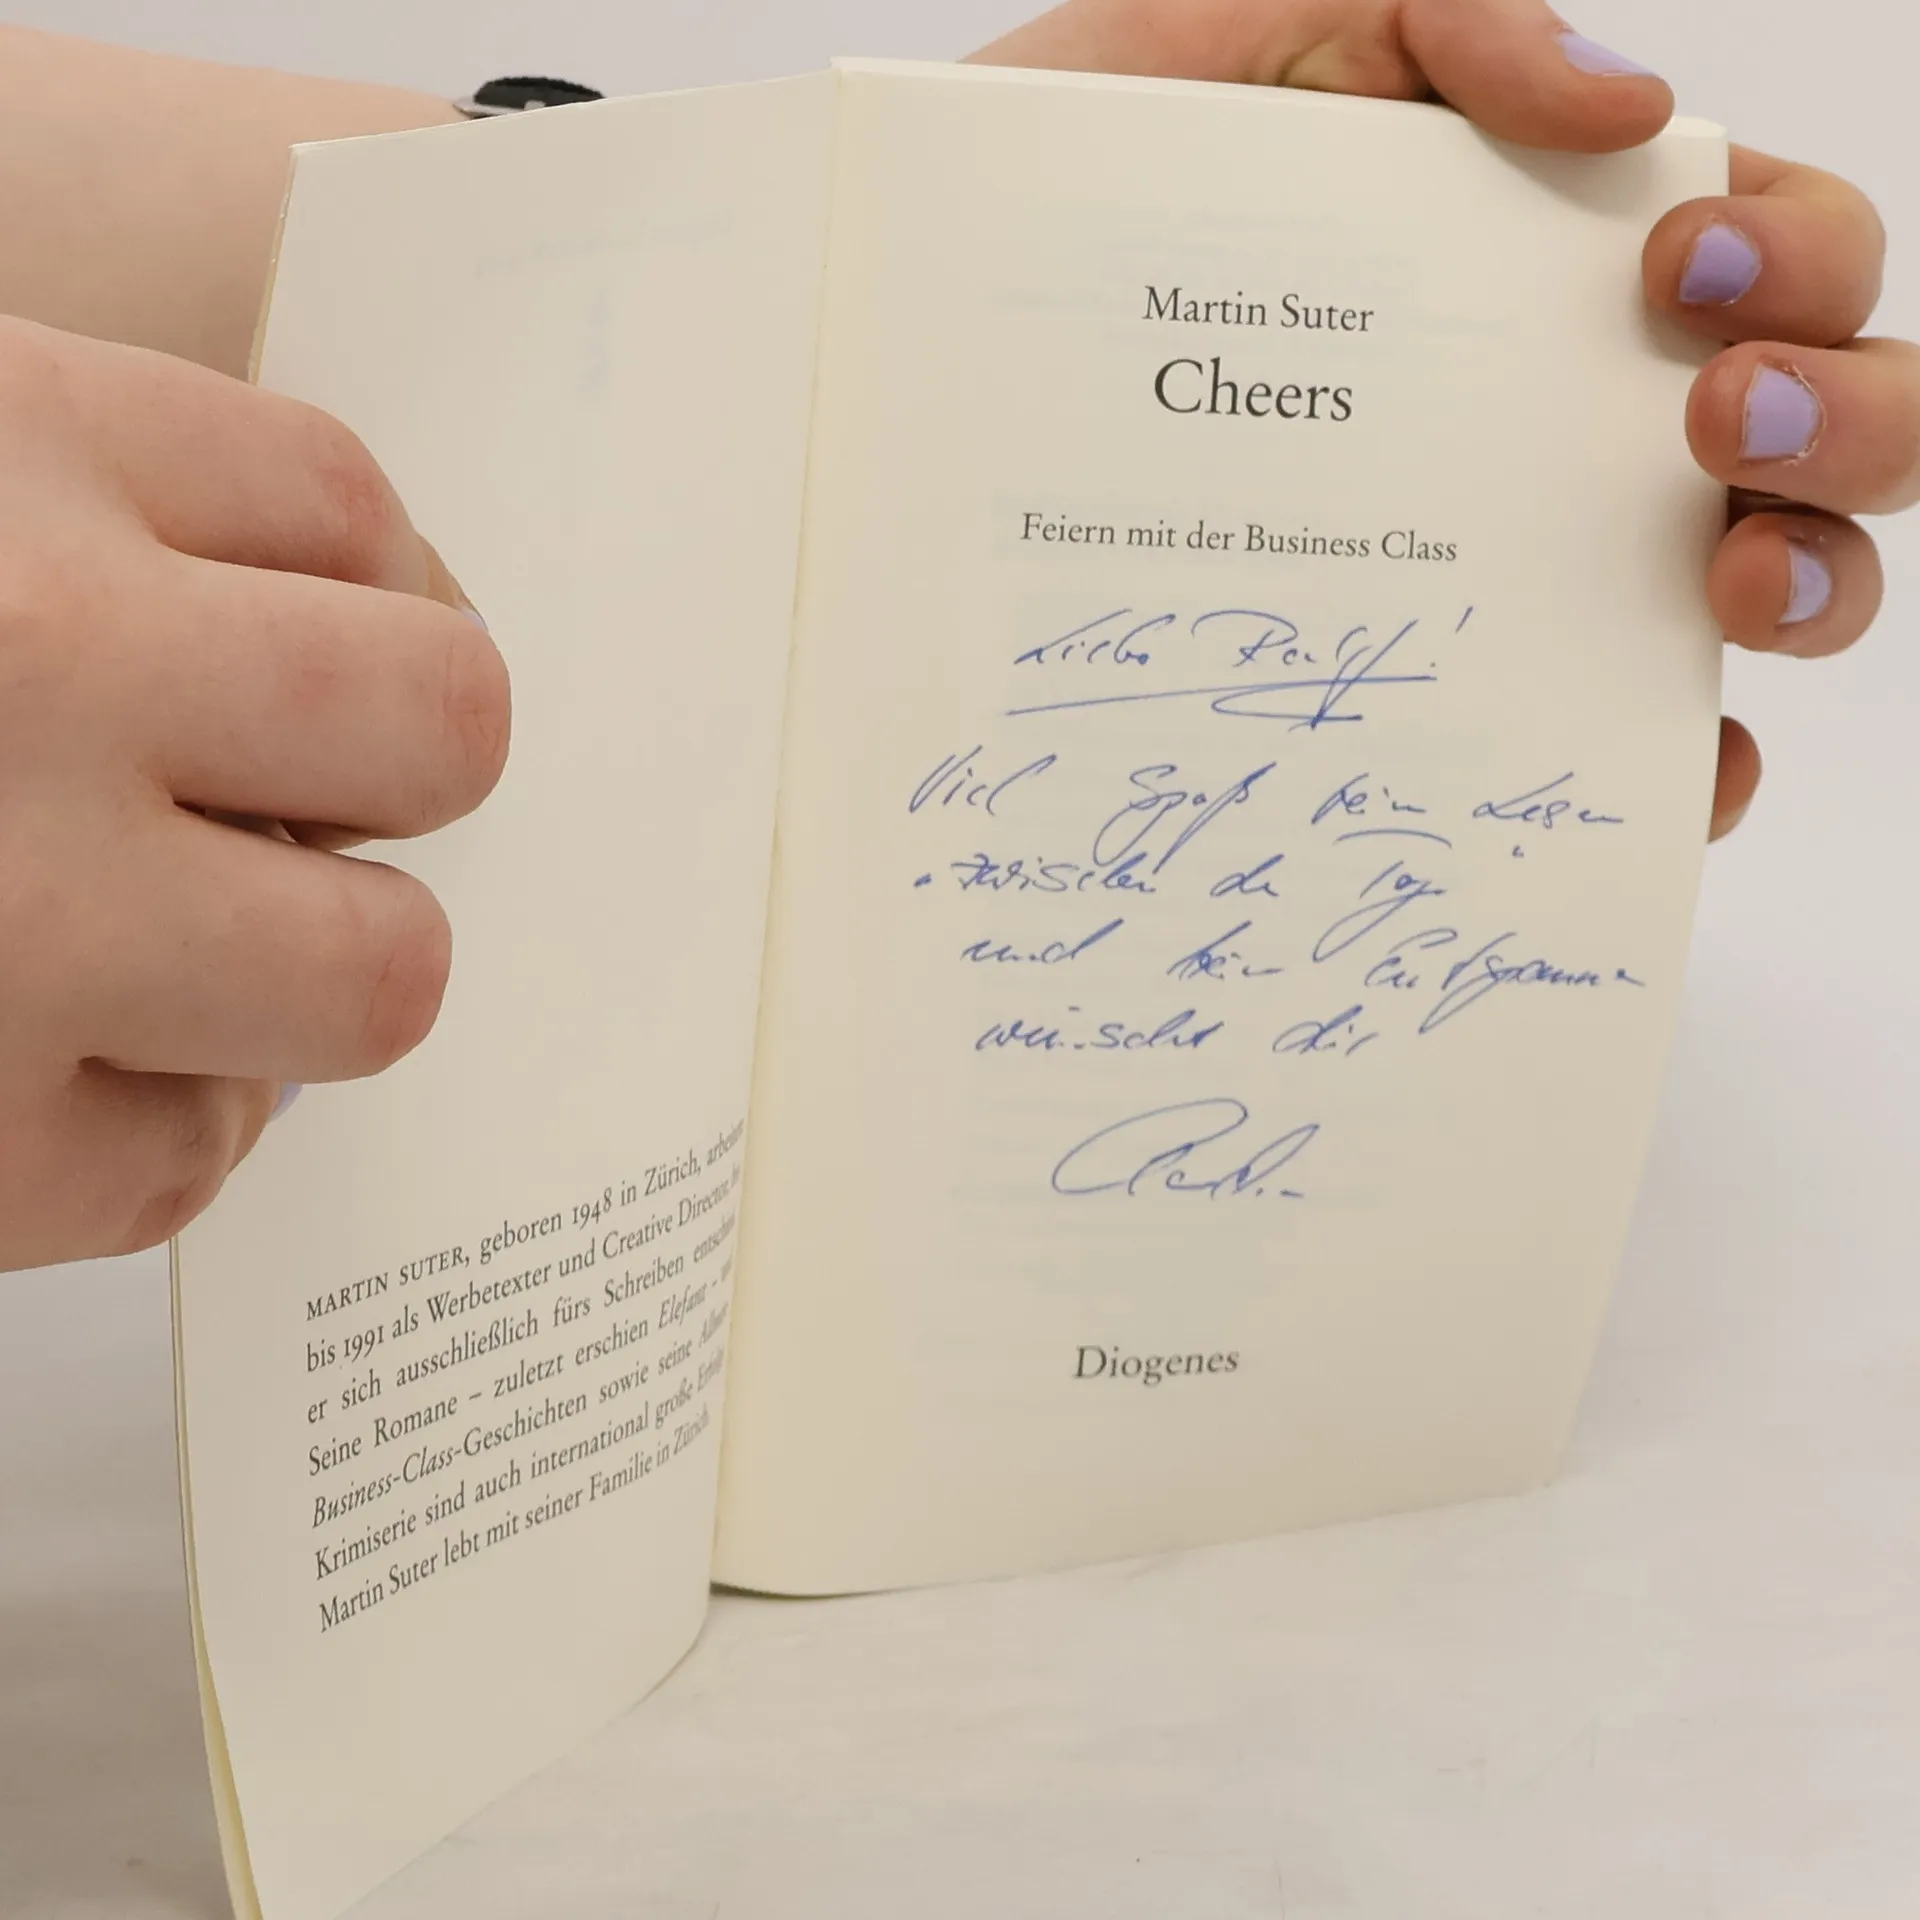 MARTIN SUTER, geboren 1948 in Zürich, arbeitete
bis 1991 als Werbetexter und Creative Director, bis
er sich ausschließlich fürs Schreiben entschied.
Seine Romane – zuletzt erschien Elefant – und
Business-Class-Geschichten sowie seine Allmen-
Krimiserie sind auch international große Erfolge.
Martin Suter lebt mit seiner Familie in Zürich.
Martin Suter
Cheers
Feiern mit der Business Class
Lieber Ralf!
Viel Spaß beim Lesen
"zwischen der Tage"
und beim Entspannen
wünscht dir
Diogenes